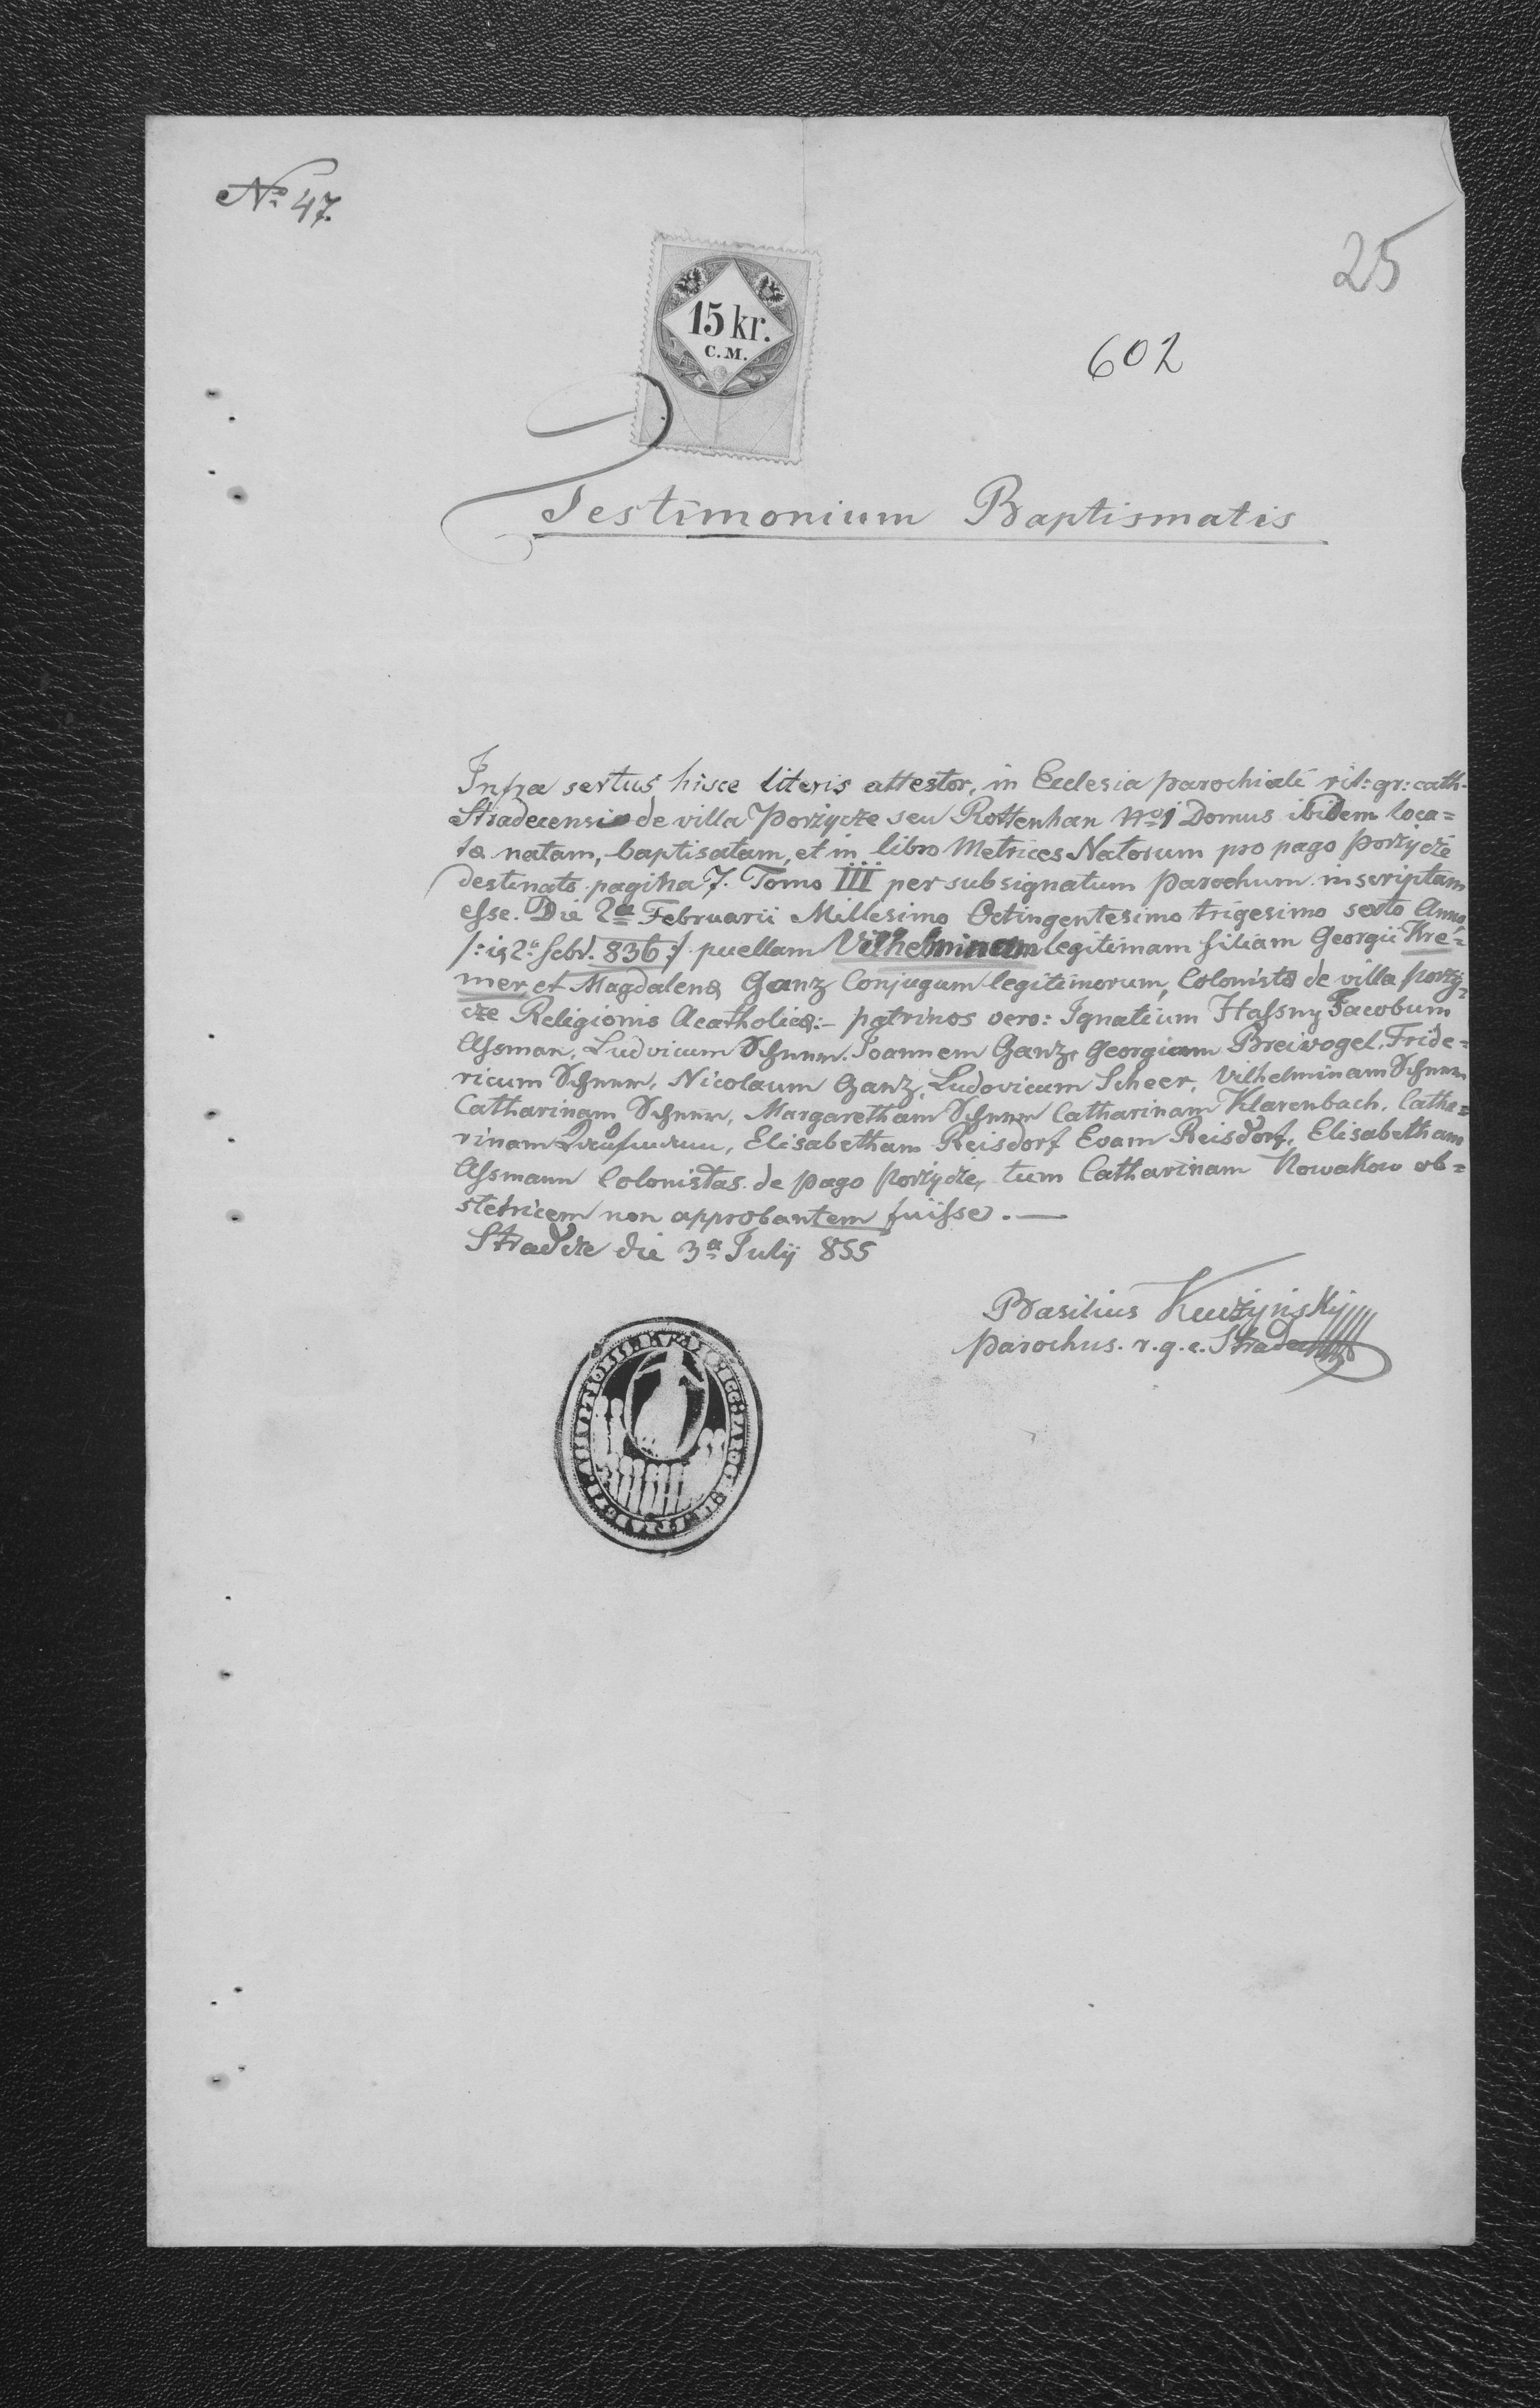 No 47.
25
15 kr.
C.M.
602
Testimonium Baptismatis
Infra sertus hisce literis attestor, in Ecclesia parochiali rit: gr: cath.
Stradecensi de villa Porzycze seu Rottenhan Nro 1 Domus ibidem loca=
ta natam, baptisatam, et in libro Metrices Natorum pro pago Porzycze
destinato pagina 7. Tomo III per subsignatum parochum inscriptam
esse. Die 2a Februarii Millesimo Octingentesimo trigesimo sexto Anno
/: i. 2a febr. 836 :/ puellam Vilhelminam legitimam filiam Georgii Kre=
mer et Magdalena Ganz Conjugum legitimorum, Colonista de villa porzy=
cze Religionis Acatholica:- patrinos vero: Ignatium Hassny Jacobum
Assman, Ludvicum Schnur. Joannem Ganz, Georgium Breivogel, Fride=
ricum Schnur, Nicolaum Ganz, Ludovicum Scheer, Vilhelminam Schnur
Catharinam Schnur, Margaretham Schnur Catharinam Klarenbach, Catha=
rinam Elisabetham Reisdorf Evam Reisdorf, Elisabetham
Assmann Colonistas de pago Porzycze, tum Catharinam Nowakow ob=
stetricem non approbantem fuisse. —
Stradcze die 3a Julij 855
Basilius
parochus. r. g. c.